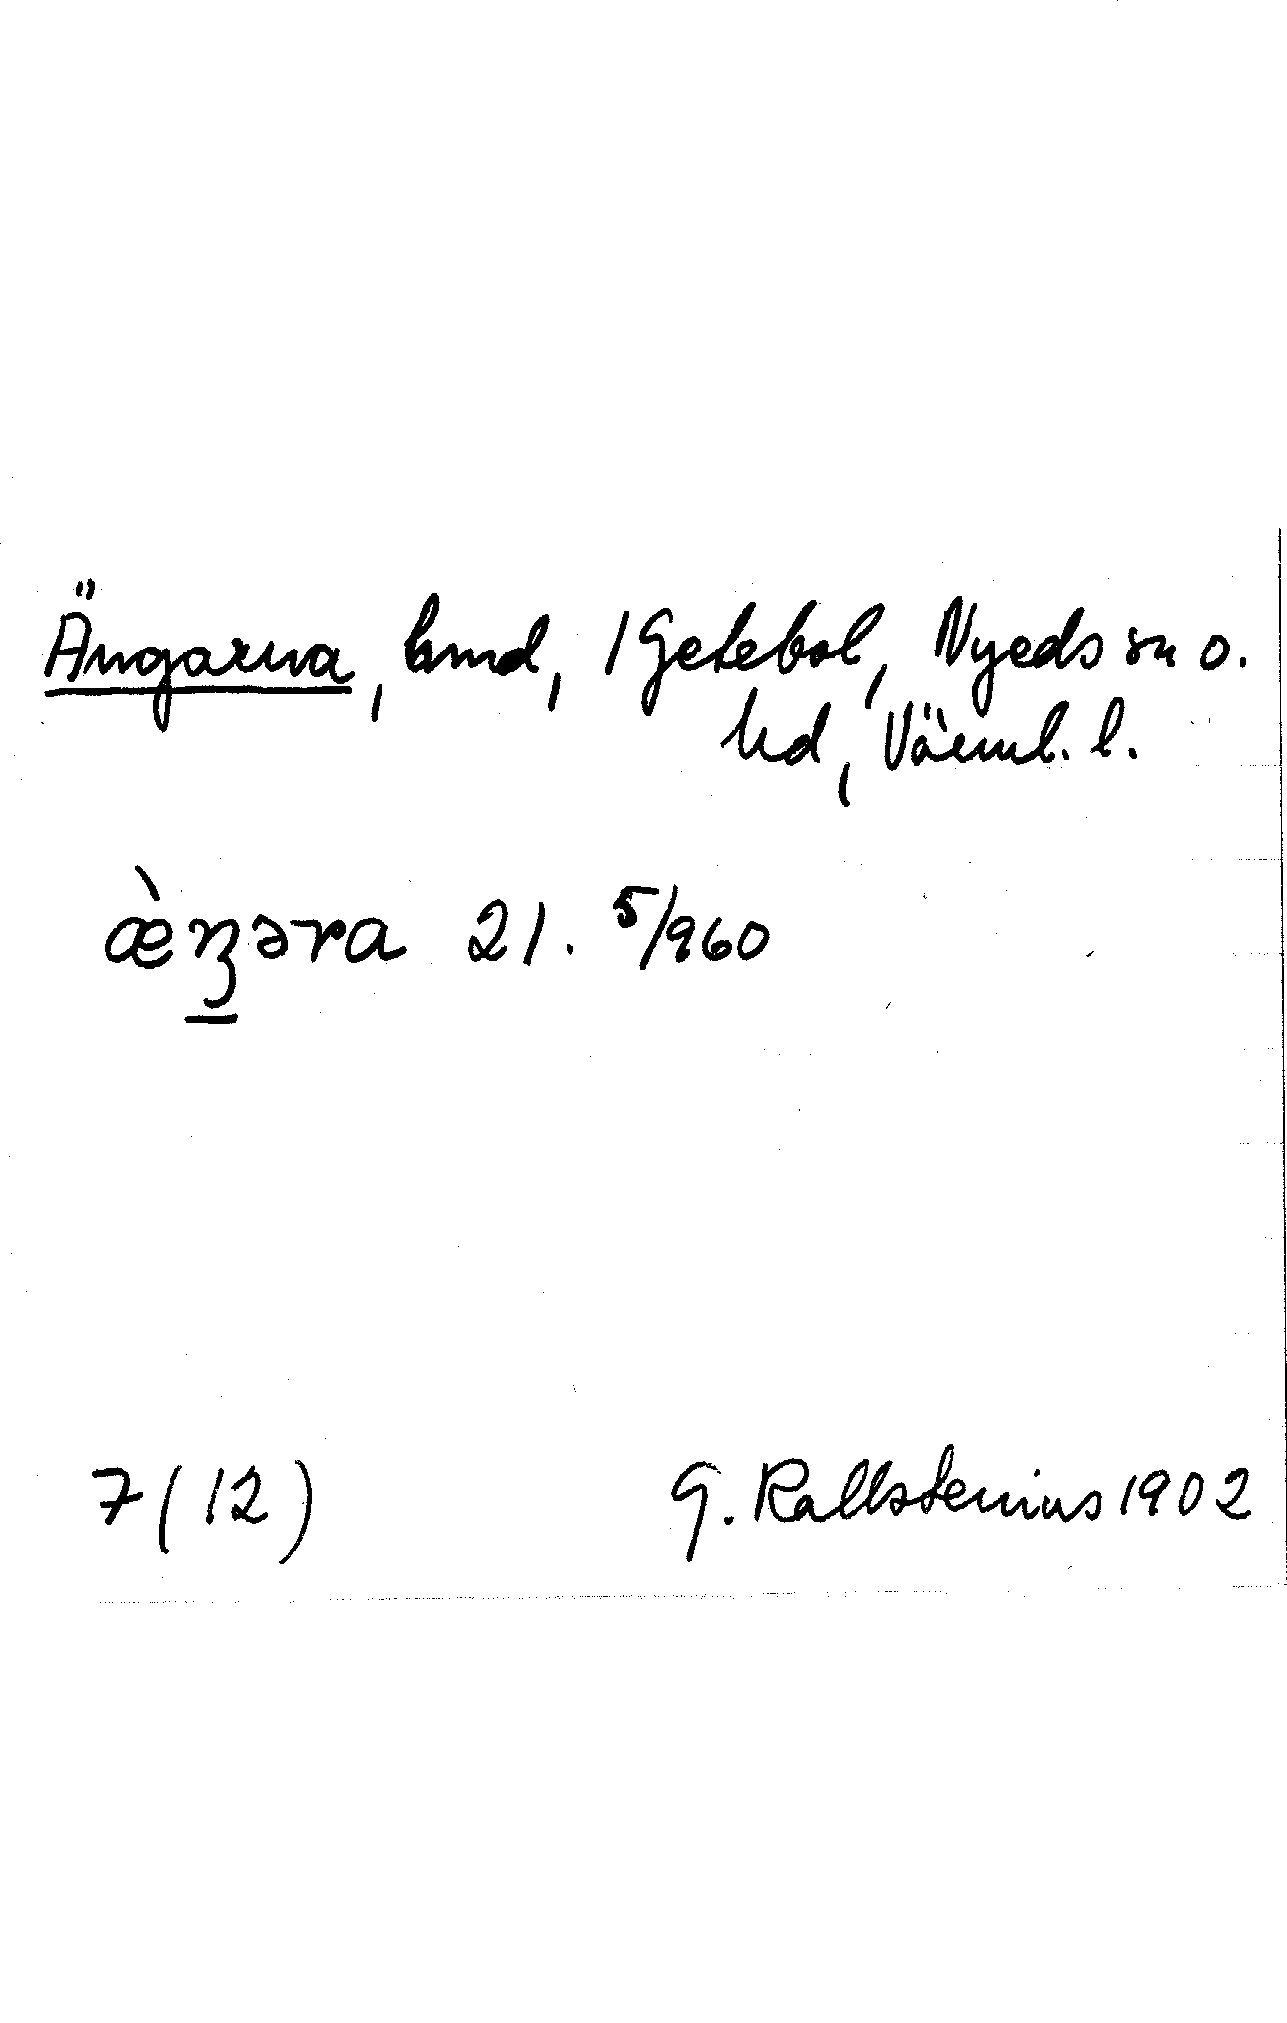 Ängarna, hmd, 1 Getebol, Nyeds sn o.
hd, Värml. l.
æ̀ŋəra 21. 5/960
7(12)
G. Kallstenius 1902